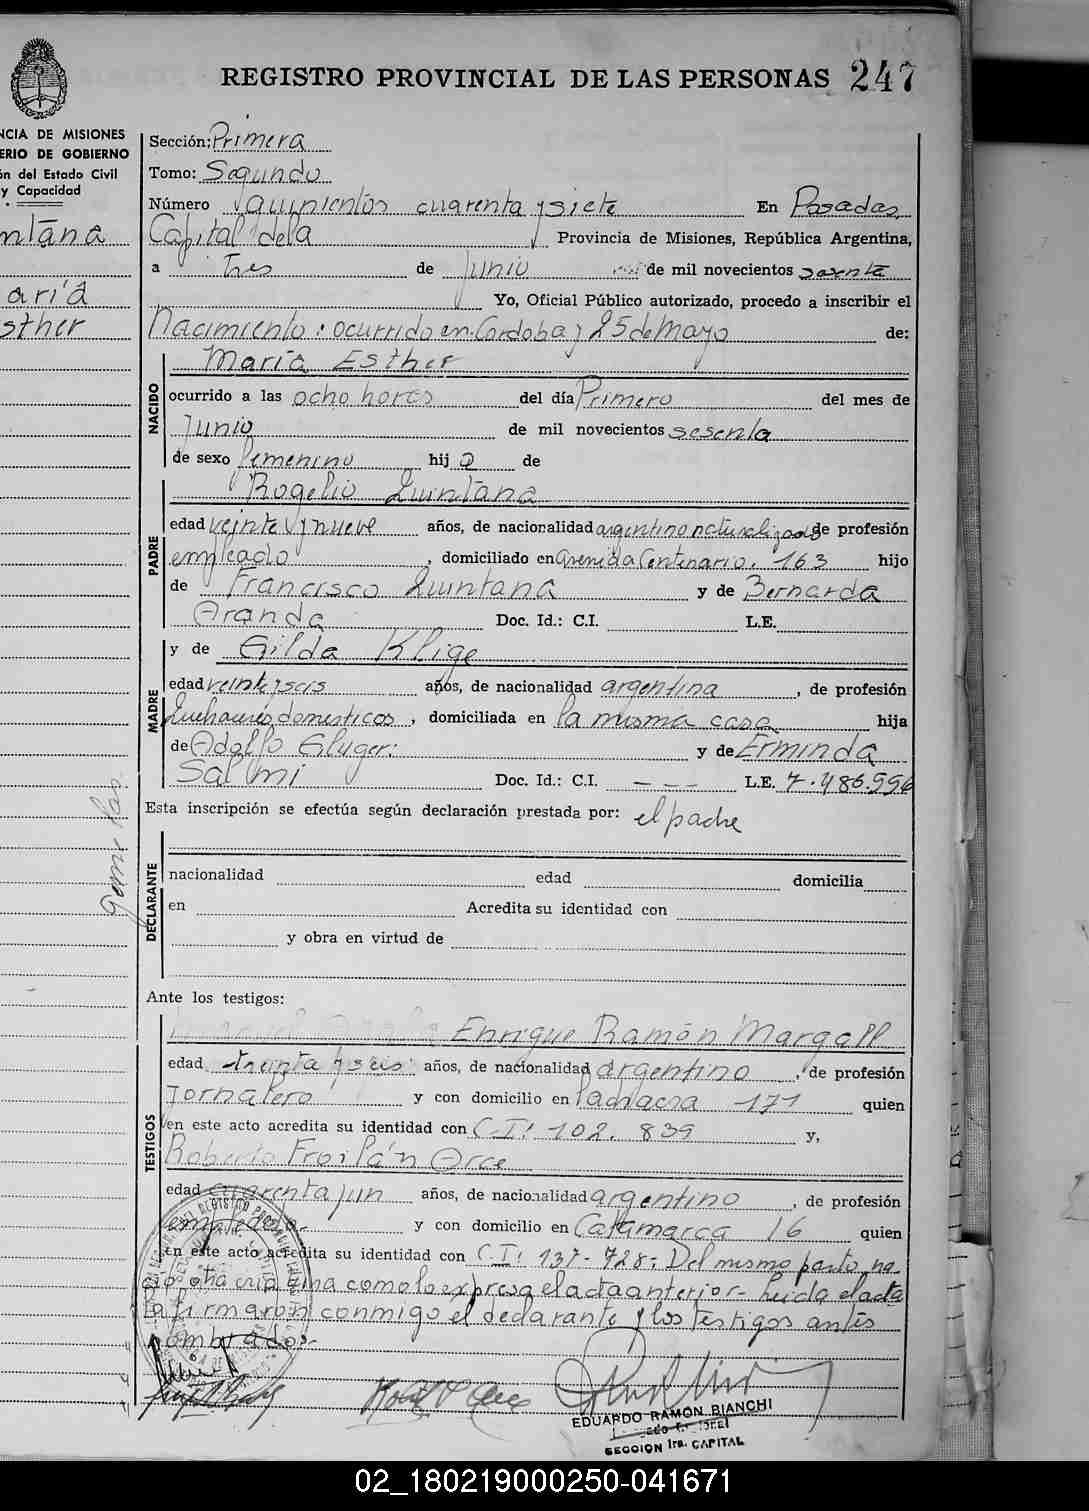 REGISTRO PROVINCIAL DE LAS PERSONAS 247
NCIA DE MISIONES
ERIO DE GOBIERNO
ón del Estado Civil
y Capacidad
ntana
aría
sther
Sección: Primera
Tomo: Segundo
Número quinientos cuarenta y siete En Posadas,
Capital de la Provincia de Misiones, República Argentina,
a Tres de Junio de mil novecientos sesenta
Yo, Oficial Público autorizado, procedo a inscribir el
Nacimiento: ocurrido en Cordoba y 25 de Mayo de:
NACIDO
María Esther
ocurrido a las ocho horas del día Primero del mes de
Junio de mil novecientos sesenta
de sexo femenino hij a de
PADRE
Rogelio Quintana
edad veinte y nueve años, de nacionalidad argentino naturalizado de profesión
empleado, domiciliado en avenida Centenario. 163 hijo
de Francisco Quintana y de Bernarda
Aranda Doc. Id.: C.I. L.E.
MADRE
y de Gilda Klige
edad veinte y seis años, de nacionalidad argentina, de profesión
quehaceres domesticos, domiciliada en la misma casa hija
de Adolfo Gluger: y de Erminda
Salmi Doc. Id.: C.I. - - - L.E. 7.486.996
Esta inscripción se efectúa según declaración prestada por: el padre
DECLARANTE
nacionalidad edad domicilia
en Acredita su identidad con
y obra en virtud de
Ante los testigos:
TESTIGOS
Enrique Ramón Margall
edad treinta y seis años, de nacionalidad argentino, de profesión
Jornalero y con domicilio en la chacra 171 quien
en este acto acredita su identidad con C.I: 102.839 y,
Roberto Froilán Arce
edad cuarenta y un años, de nacionalidad argentino, de profesión
empleado y con domicilio en Catamarca 16 quien
en este acto acredita su identidad con C.I: 137-728; Del mismo parto na-
cio otra como lo expresa el acta anterior- Leida el acta
la firmaron conmigo el declarante y los testigos antes
nombrados-
EDUARDO RAMON BIANCHI
SECCION 1ra. CAPITAL
02_180219000250-041671